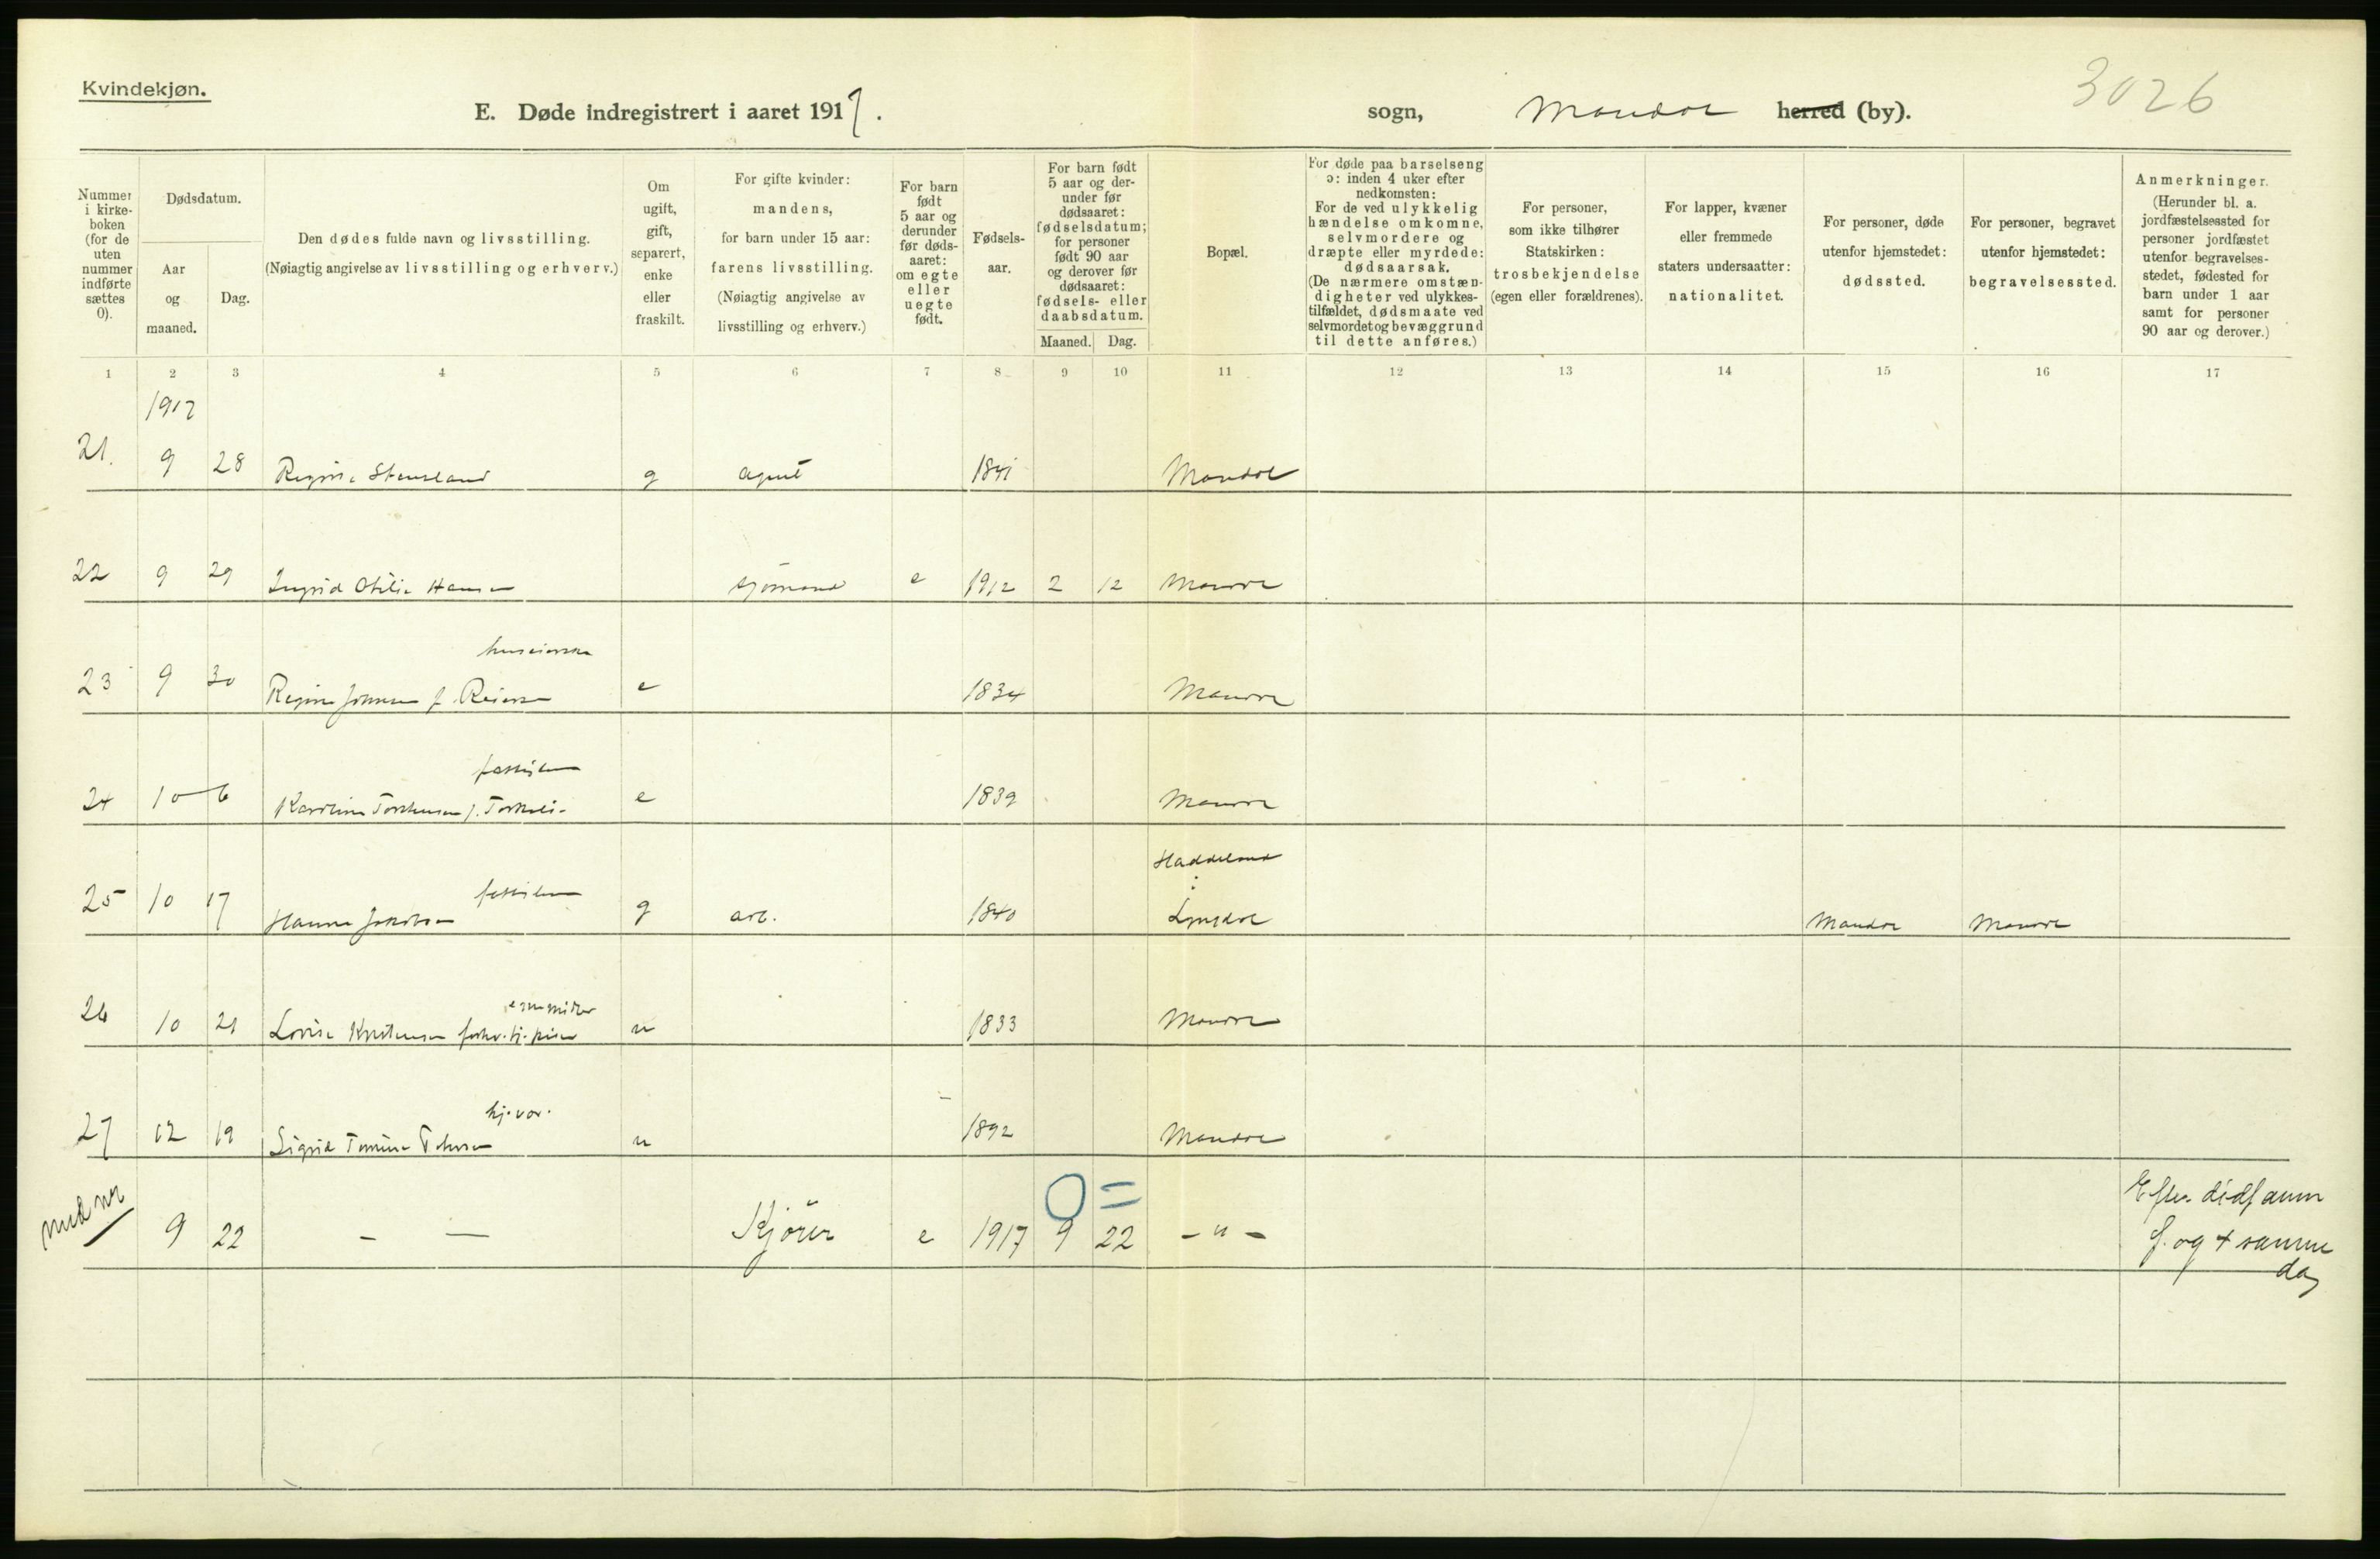 Kvindekjøn.
E. Døde indregistrert i aaret 1917.
sogn, Mandal herred (by).
3026
Nummer i kirkeboken (for de uten nummer indførte sættes 0).
Dødsdatum.
Aar og maaned.
Dag.
Den dødes fulde navn og livsstilling.
(Nøiagtig angivelse av livsstilling og erhverv.)
Om ugift, gift, separert, enke eller fraskilt.
For gifte kvinder: mandens, for barn under 15 aar: farens livsstilling. (Nøiagtig angivelse av livsstilling og erhverv.)
For barn født 5 aar og derunder før dødsaaret: om egte eller uegte født.
Fødselsaar.
For barn født 5 aar og derunder før dødsaaret: fødselsdatum; for personer født 90 aar og derover før dødsaaret: fødsels- eller daabsdatum.
Maaned. Dag.
Bopæl.
For døde paa barselseng ɔ: inden 4 uker efter nedkomsten: For de ved ulykkelig hændelse omkomne, selvmordere og dræpte eller myrdede: dødsaarsak. (De nærmere omstændigheter ved ulykkestilfældet, dødsmaate ved selvmordet og bevæggrund til dette anføres.)
For personer, som ikke tilhører Statskirken: trosbekjendelse (egen eller forældrenes).
For lapper, kvæner eller fremmede staters undersaatter: nationalitet.
For personer, døde utenfor hjemstedet: dødssted.
For personer, begravet utenfor hjemstedet: begravelsessted.
Anmerkninger. (Herunder bl. a. jordfæstelsessted for personer jordfæstet utenfor begravelsesstedet, fødested for barn under 1 aar samt for personer 90 aar og derover.)
1 2 3 4 5 6 7 8 9 10 11 12 13 14 15 16 17
1917
21. 9 28 Regine Stensland g agent 1841 Mandal
22 9 29 Ingrid Otilie Hansen sjømand e 1912 2 12 Mandal
huseierske
23 9 30 Regine Johnsen f. Reiersen e 1834 Mandal
fattiglem
24 10 6 Karoline f. e 1839 Mandal
Haddeland
fattiglem
25 10 17 Hanna Jakobsen g arb. 1840 Lyngdal Mandal Mandal
26 10 21 Lovise Kristensen forhv. tj.pike u 1833 Mandal
hj. vær.
27 12 19 Sigrid Tomine u 1892 Mandal
0 =
9 22 - — Kjører e 1917 9 22 - " -
Efter dødsanm
f. og + samme
dag